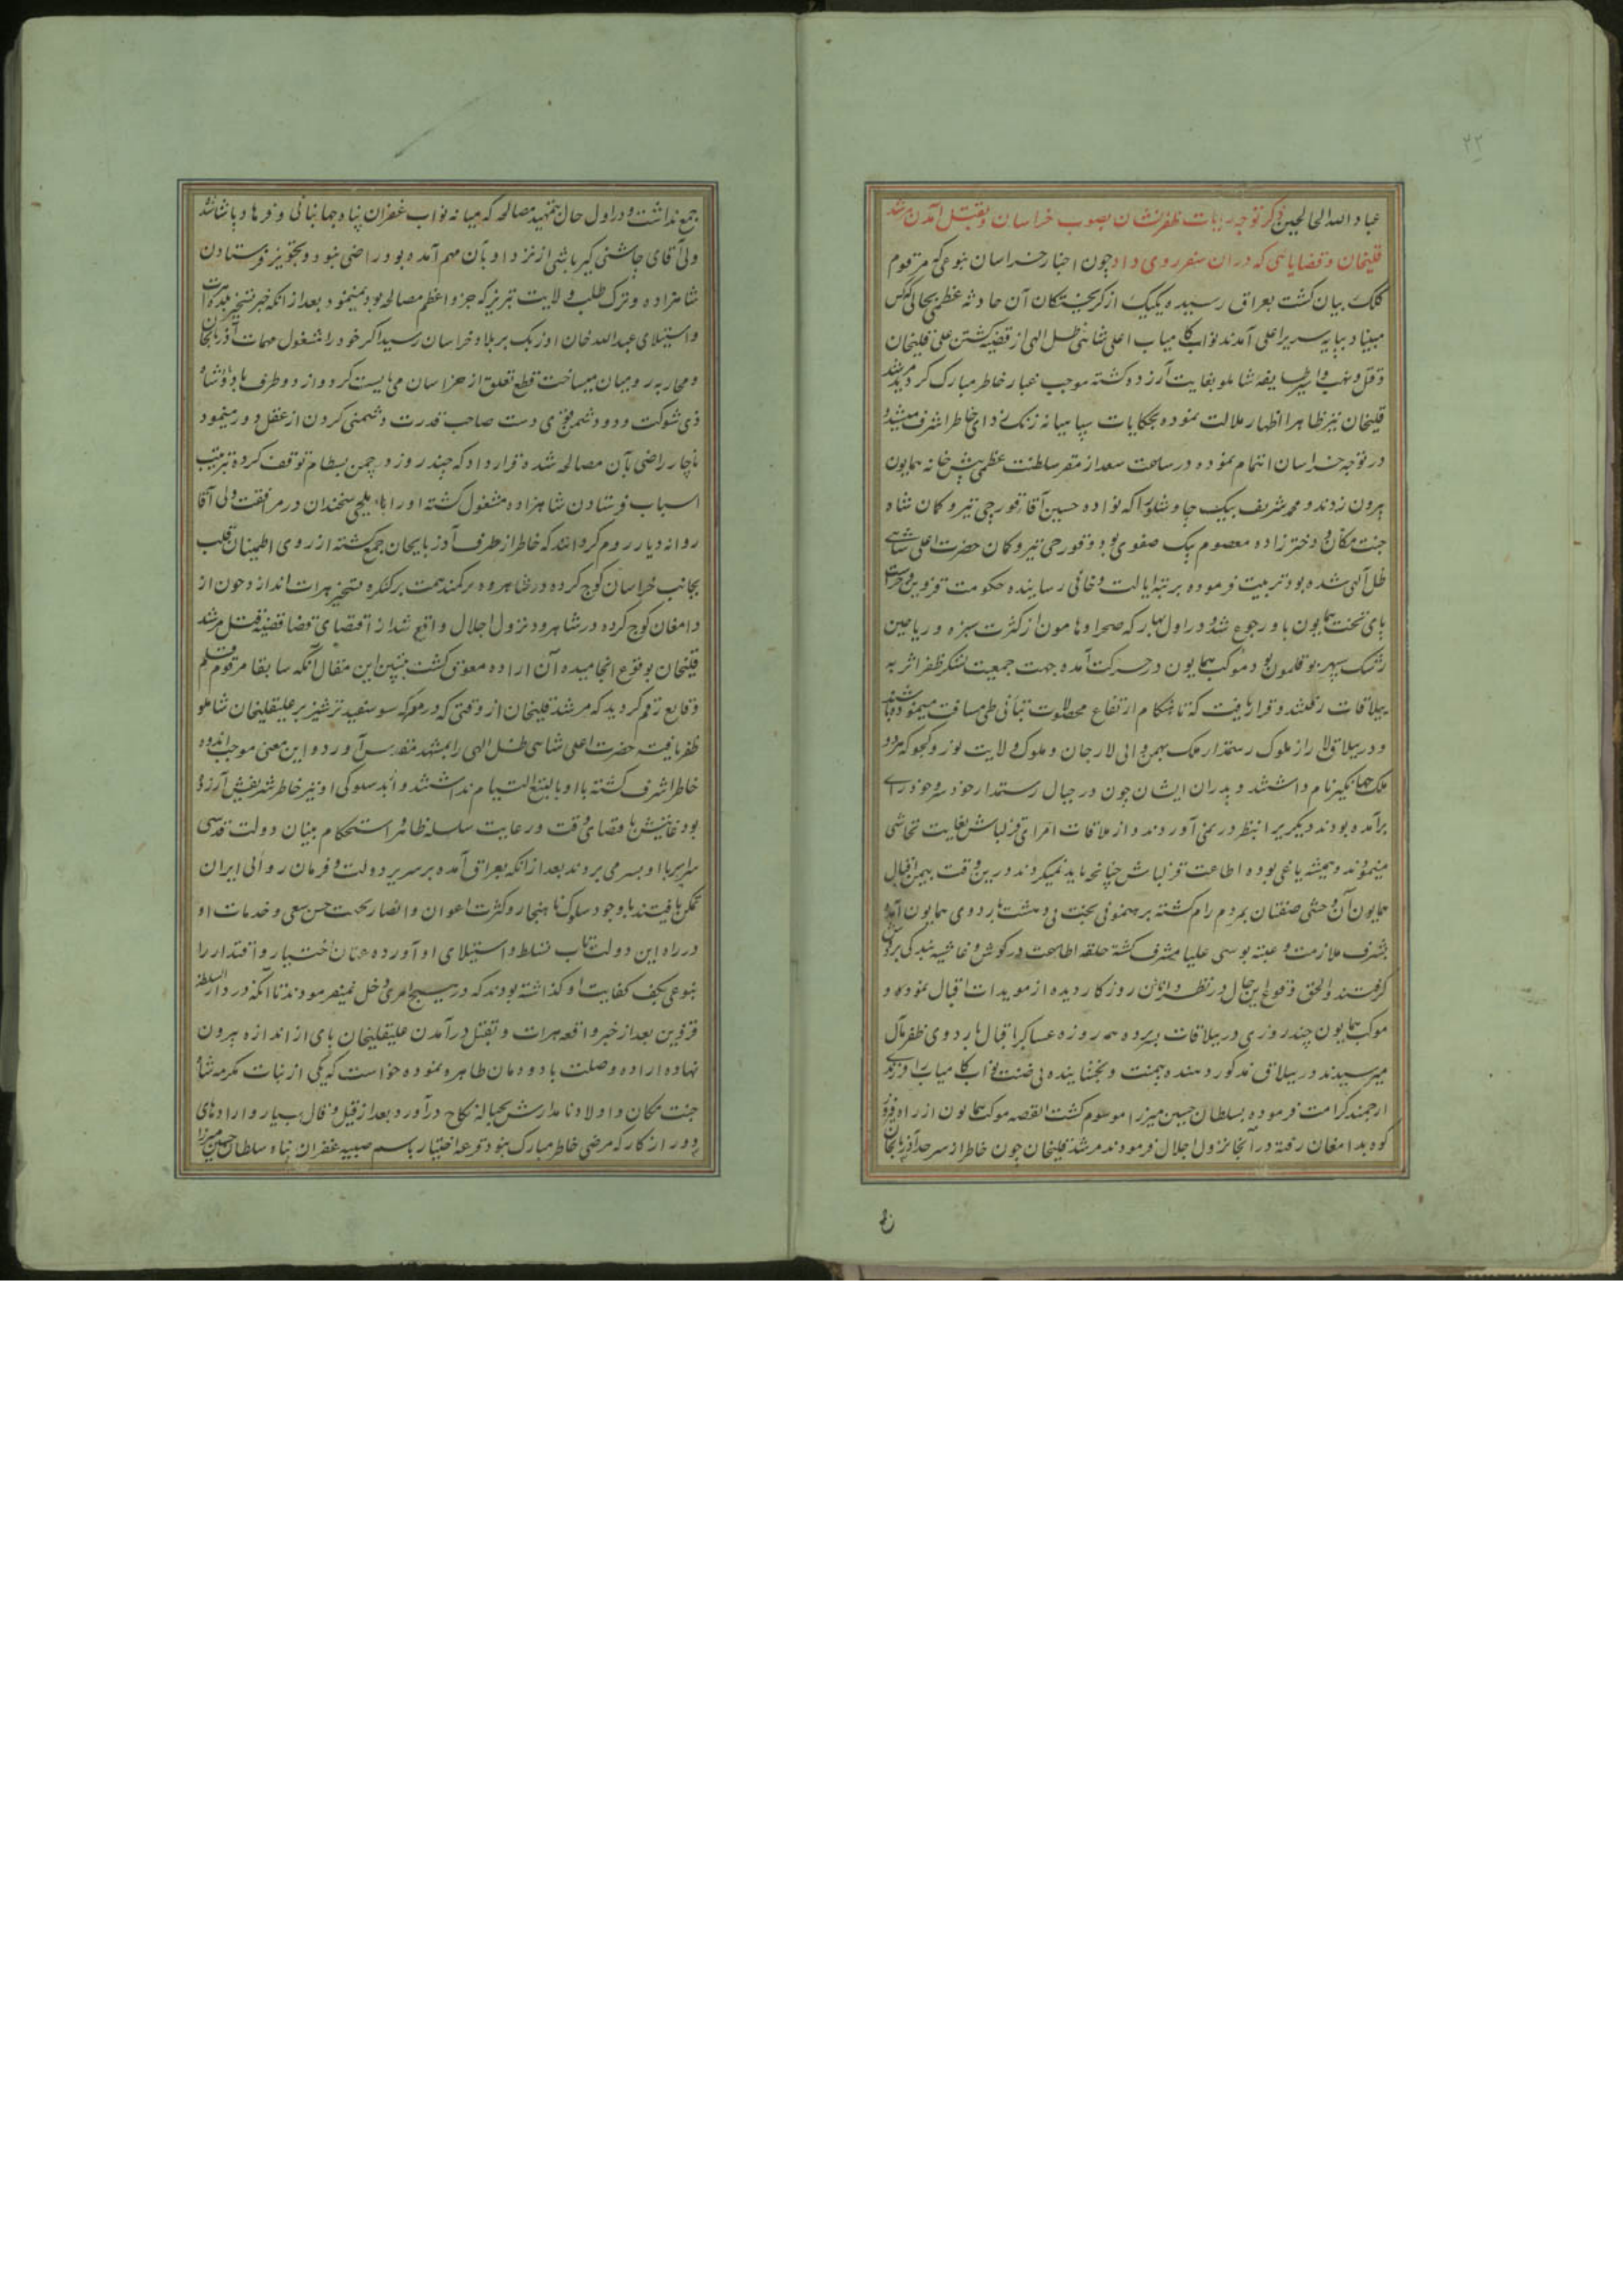 ۲۲
عباد الله الصالحین ذکر توجه رایات ظفرنشان بصوب خراسان و بقتل آمدن مرشد
قلیخان و قضایائی که در آن سفر روی داد چون اخبار خراسان بنوعی که مرقوم
کلک بیان گشت بعراق رسیده یکیک از گریختگان آن حادثه عظمی بحالی که کس
مبیناد بپایه سریر اعلی آمدند نواب کامیاب اعلی شاهی ظل الهی از قضیه کشتن علی قلیخان
و قتل و نهب و اسیر طایفه شاملو بغایت آزرده گشته موجب غبار خاطر مبارک گردید مرشد
قلیخان نیز ظاهرا اظهار ملالت نموده بحکایات سپاهیانه زنک زدای خاطر اشرف میشد و
در توجه خراسان اهتمام نموده در ساعت سعد از مقر سلطنت عظمی پیش خانه همایون
بیرون زدند و محمد شریف بیک چاوشلو را که نواده حسین آقا قورچی تیر و کمان شاه
جنت مکان و دختر زاده معصوم بیک صفوی بود و قورچی تیر و کمان حضرت اعلی شاهی
ظل الهی شده بود تربیت فرموده برتبه ایالت و خانی رسانیده حکومت قزوین و حراست
پای تخت همایون باو رجوع شد و در اول بهار که صحرا و هامون از کثرت سبزه و ریاحین
رشک سپهر بوقلمون بود موکب همایون در حرکت آمده جهت جمعیت لشکر ظفر اثر به
ییلاقات رفتند و قرار یافت که تا هنگام ارتفاع محصولات بتأنی طی مسافت مینموده باشند
و در ییلاق لار از ملوک رستمدار ملک بهمن والی لارجان و ملوک ولایت نور و کجو که هر دو
ملک جهانگیر نام داشتند و پدران ایشان چون در جبال رستمدار خود سر و خود رای
برآمده بودند دیگری را بنظر در نمی آوردند و از ملاقات امرای قزلباش بغایت تحاشی
مینمودند و همیشه یاغی بوده اطاعت قزلباش چنانچه باید نمیکردند درین وقت بیمن اقبال
همایون آن وحشی صفتان بمردم رام گشته برهنمونی بخت بی وحشت باردوی همایون آمده
بشرف ملازمت و عتبه بوسی علیا مشرف گشته حلقه اطاعت در گوش و غاشیه بندگی بر دوش
گرفتند و الحق وقوع این حال در نظر دانایان روزگار دیده از مویدات اقبال نموده و
موکب همایون چند روزی در ییلاقات بسر برده همه روزه عساکر اقبال باردوی ظفر مآل
میرسیدند در ییلاق مذکور دهنده بیمنت و بخشاینده بی ضنت نواب کامیاب را فرزندی
ارجمند کرامت فرموده بسلطان حسین میرزا موسوم گشت القصه موکب همایون از راه فیروز
کوه بدامغان رفته در آنجا نزول اجلال فرمودند مرشد قلیخان چون خاطر از سرحد آذربایجان
جمع نداشت و در اول حال بتمهید مصالحه که میانه نواب غفران پناه جهانبانی و فرهاد پاشا شد
ولی آقای چاشنی گیر باشی از نزد او بآن مهم آمده بود راضی نبود و تجویز فرستادن
شاهزاده و ترک طلب ولایت تبریز که جزو اعظم مصالحه بود نمینمود بعد از آنکه خبر تسخیر بلده هرات
و استیلای عبدالله خان اوزبک بر بلاد خراسان رسید اگر خود را مشغول مهمات آذربایجان
و محاربه رومیان میساخت قطع تعلق از خراسان می بایست کرد و از دو طرف با دو پادشاه
ذی شوکت و دو دشمن قوی دست صاحب قدرت دشمنی کردن از عقل دور مینمود
ناچار راضی بآن مصالحه شده قرار داد که چند روز در چمن بسطام توقف کرده بترتیب
اسباب فرستادن شاهزاده مشغول گشته او را با ایلچی سخندان در مرافقت ولی آقا
روانه دیار روم گردانند که خاطر از طرف آذربایجان جمع گشته از روی اطمینان قلب
بجانب خراسان کوچ کرده در شاهرود کمند همت بر کنکره تسخیر هرات اندازد چون از
دامغان کوچ کرده در شاهرود نزول اجلال واقع شد از اقتضای قضا قضیه قتل مرشد
قلیخان بوقوع انجامیده آن اراده معوق گشت تبیین این مقال آنکه سابقا مرقوم قلم
وقایع رقم گردید که مرشد قلیخان از وقتی که در معرکه سوسفید ترشیز بر علیقلیخان شاملو
ظفر یافت حضرت اعلی شاهی ظل الهی را بمشهد مقدس آورد و این معنی موجب اندوه
خاطر اشرف گشته با او بالطبع التیام نداشتند و از بدسلوکی او نیز خاطر شریفش آزرده
بود غایتش باقتضای وقت و رعایت سلسله ظاهر و استحکام بنیان دولت قدسی
سرایر با او بسر می بردند بعد از آنکه بعراق آمده بر سریر دولت و فرمان روائی ایران
تمکن یافتند با وجود سلوک ناهنجار و کثرت اعوان و انصار بجهت حسن سعی و خدمات او
در راه این دولت تاب تسلط و استیلای او آورده عنان اختیار و اقتدار را
بنوعی بکف کفایت او گذاشته بودند که در هیچ امری دخل نمیفرمودند تا آنکه در دار السلطنه
قزوین بعد از خبر واقعه هرات و بقتل درآمدن علیقلیخان پای از اندازه بیرون
نهاده اراده وصلت با دودمان طاهره نموده خواست که یکی از بنات مکرمه شاه
جنت مکان و اولاد نامدارش بحباله نکاح درآورد بعد از قیل و قال بسیار و ارادهای
دور از کار که مرضی خاطر مبارک نبود قرعه اختیار باسم صبیه غفران پناه سلطان حسین میرزا